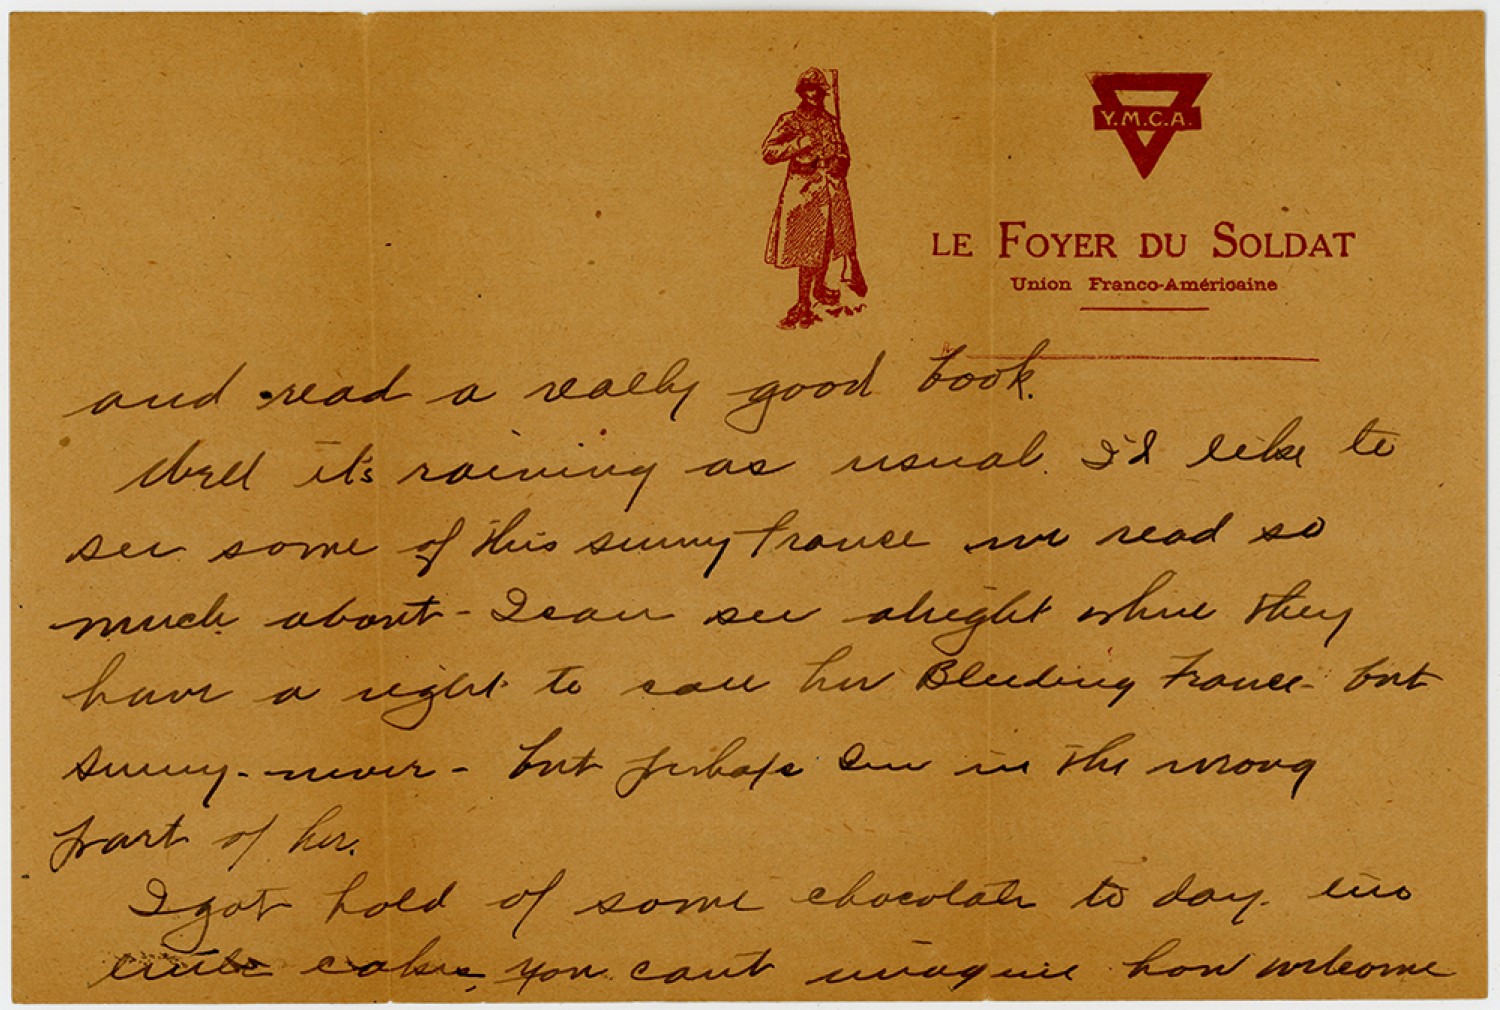 Y.M.C.A.
LE FOYER DU SOLDAT
Union Franco-Américaine
and read a really good book.
Well it's raining as usual. I'd like to
see some of this sunny France we read so
much about - I can see alright where they
have a right to call her Bleeding France - but
sunny - never - but perhaps I'm in the wrong
part of her.
I got hold of some chocolate to day.
cakes, you cant imagine how welcome